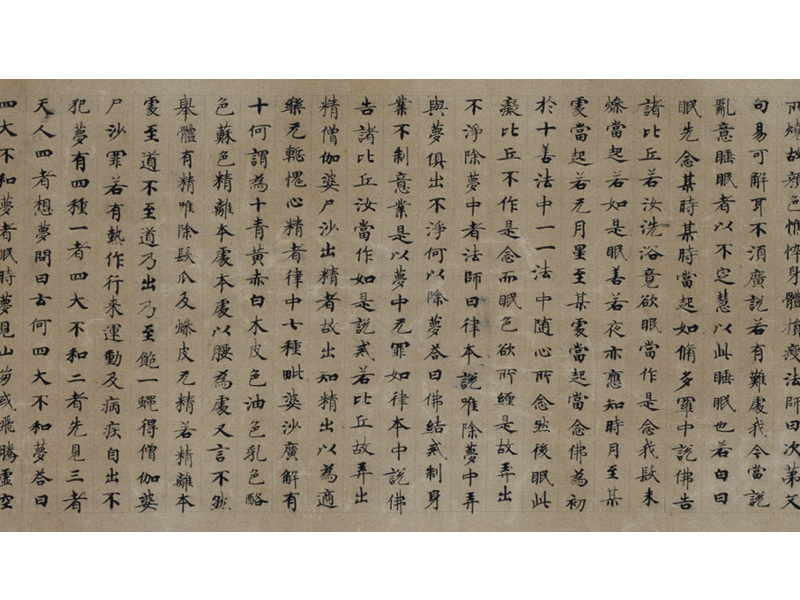 所燒故顏色憔悴身體痟瘦法師曰次第文
句易可解耳不須廣說若有難處我今當說
亂意睡眠者以不定慧以此睡眠也若白日
眠先念某時某時當起如脩多羅中說佛告
諸比丘若汝洗浴竟欲眠當作是念我髮未
燥當起若如是眠善若夜亦應知時月至某
處當起若无月星至某處當起當念佛為初
於十善法中一一法中随心所念然後眠此
癡比丘不作是念而眠色欲所纏是故弄出
不淨除夢中者法師曰律本說唯除夢中弄
與夢俱出不淨何以除夢荅曰佛結戒制身
業不制意業是以夢中无罪如律本中說佛
告諸比丘汝當作如是說戒若比丘故弄出
精僧伽婆尸沙出精者故出知精出以為適
樂无慚愧心精者律中七種毗婆沙廣解有
十何謂為十青黃赤白木皮色油色乳色酪
色蘇色精離本處本處以腰為處又言不然
舉體有精唯除髮爪及燥皮无精若精離本
處至道不至道乃出乃至飽一蠅得僧伽婆
尸沙罪若有熱作行来運動及病疾自出不
犯夢有四種一者四大不和二者先見三者
天人四者想夢問曰云何四大不和夢荅曰
四大不和夢者眠時夢見山崩或飛騰虛空